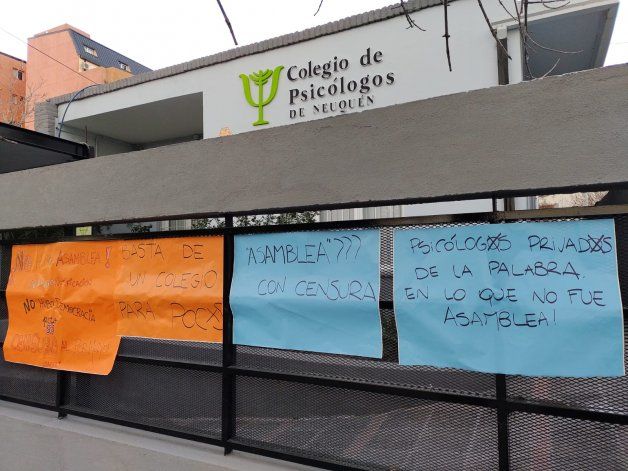 Colegio de
Psicólogos
DE NEUQUÉN
ASAMBLEA!
NO HUBO DEMOCRACIA
BASTA DE
UN COLEGIO
PARA POCXS
"ASAMBLEA"???
CON CENSURA
PSICÓLOGXS PRIVADXS
DE LA PALABRA.
EN LO QUE NO FUE
ASAMBLEA!